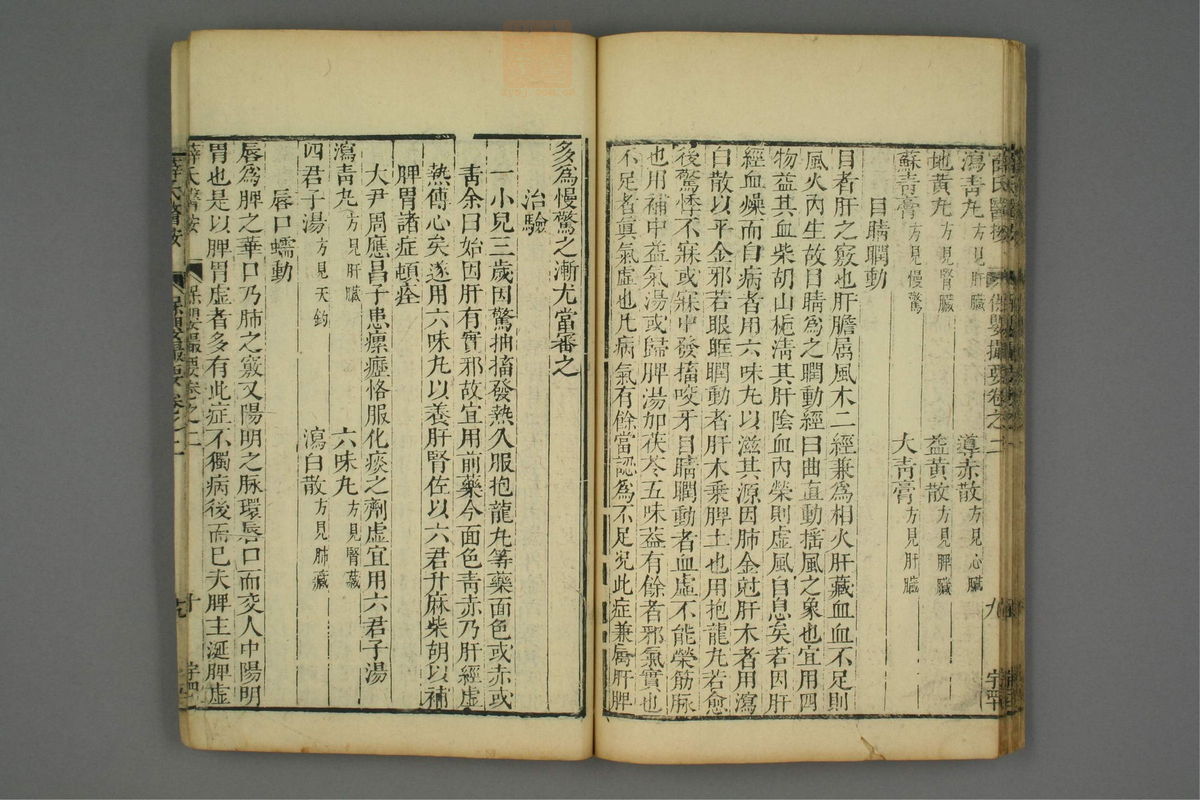 薛氏醫按 保嬰撮要卷之二 九
瀉青丸方見肝臟 導赤散方見心臟
地黃丸方見腎臟 益黃散方見脾臟
蘇青膏方見慢驚 大青膏方見肝臟
目睛瞤動
目者肝之竅也肝膽屬風木二經兼為相火肝藏血血不足則
風火內生故目睛為之瞤動經曰曲直動搖風之象也宜用四
物益其血柴胡山梔清其肝陰血內榮則虛風自息矣若因肝
經血燥而自病者用六味丸以滋其源因肺金尅肝木者用瀉
白散以平金邪若眼眶瞤動者肝木乘脾土也用抱龍丸若愈
後驚悸不寐或寐中發搐咬牙目睛瞤動者血虛不能榮筋脉
也用補中益氣湯或歸脾湯加茯苓五味蓋有餘者邪氣實也
不足者眞氣虛也凡病氣有餘當認為不足况此症兼屬肝脾
多為慢驚之漸尤當審之
治驗
一小兒三歲因驚抽搐發熱久服抱龍丸等藥面色或赤或
青余曰始因肝有實邪故宜用前藥今面色青赤乃肝經虛
熱傳心矣遂用六味丸以養肝腎佐以六君升麻柴胡以補
脾胃諸症頓痊
大尹周應昌子患瘰癧恪服化痰之劑虛宜用六君子湯
瀉青丸方見肝臟 六味丸方見腎藏
四君子湯方見天釣 瀉白散方見肺臟
唇口蠕動
唇為脾之華口乃肺之竅又陽明之脉環唇口而交人中陽明
胃也是以脾胃虛者多有此症不獨病後而已夫脾主涎脾虛
薛氏醫按 保嬰撮要卷之二 十